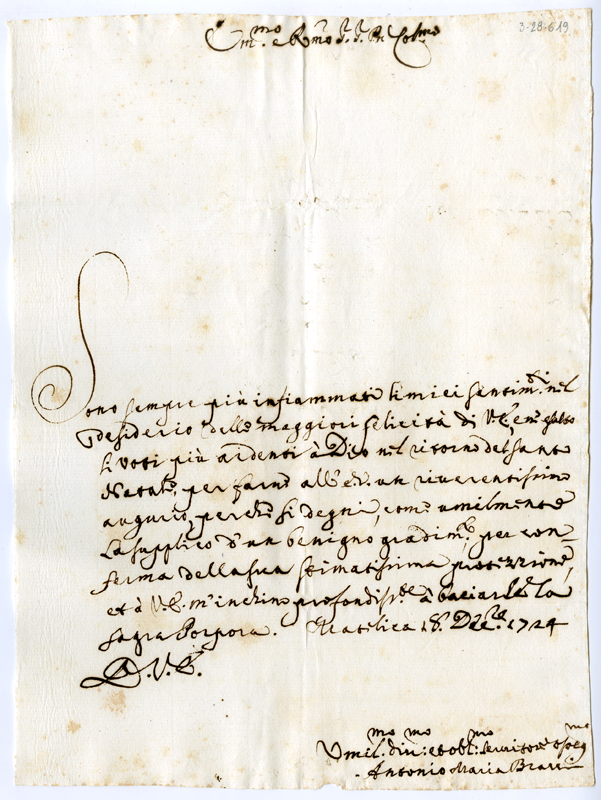 3-28-619
Em.mo e R.mo S.r S.r Pn Col.mo
Sono sempre più infiammati li miei sentim.ti nel
desiderio delle maggiori felicità di V.E., e n'esalto
li voti più ardenti à Dio nel ritorno del Santo
Natale, per farne all'E.V. un riverentissimo
augurio, perche si degni, come umilmente
La supplico d'un benigno gradim.to per con-
ferma della sua stimatissima protezzione,
et à V.E. m'inchino profondiss.te à baciarLe la
sagra Porpora. Matelica 18. Dec.re 1724
D.V.E.
Umil.mo div.mo et obl.mo servitore
Antonio Maria